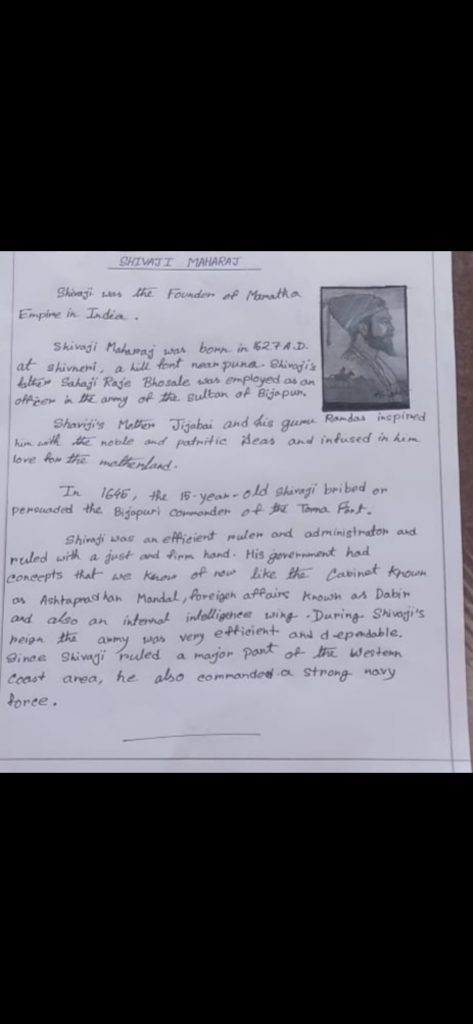 SHIVAJI MAHARAJ
Shivaji was the Founder of Maratha
Empire in India.
Shivaji Maharaj was born in 1627 A.D.
at shivneri, a hill fort near puna. Shivaji's
father Sahaji Raje Bhosale was employed as an
officer in the army of the Sultan of Bijapur.
Shaviji's Mother Jijabai and his guru Ramdas inspired
him with the noble and patritic ideas and infused in him
love for the motherland.
In 1645, the 15-year-old Shivaji bribed or
persuaded the Bijapuri commander of the Torna Fort.
Shivaji was an efficient ruler and administrator and
ruled with a just and firm hand. His government had
concepts that we know of now like the Cabinet known
as Ashtapradhan Mandal, foreign affairs known as Dabir
and also an internal intelligence wing. During Shivaji's
reign the army was very efficient and dependable.
Since Shivaji ruled a major part of the Western
Coast area, he also commanded a strong navy
force.